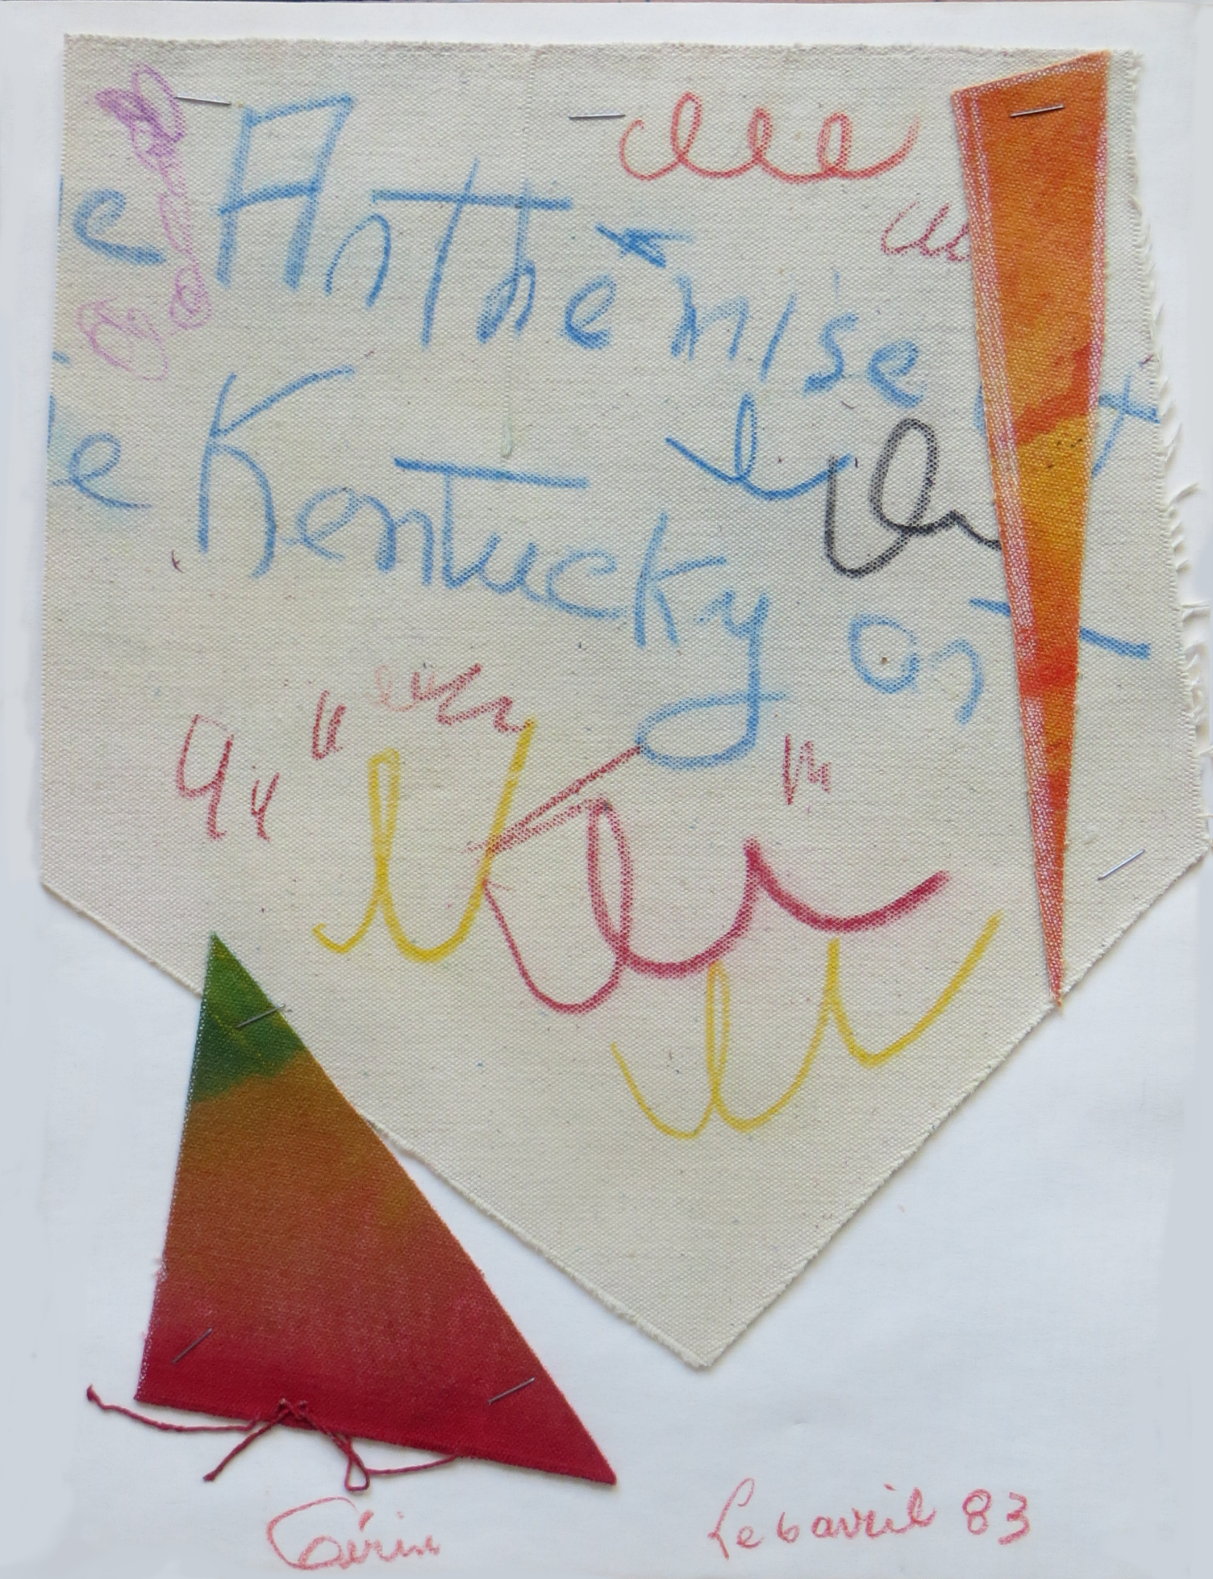 e Anthémise et
e Kentucky ont
Gérin
Le 6 avril 83